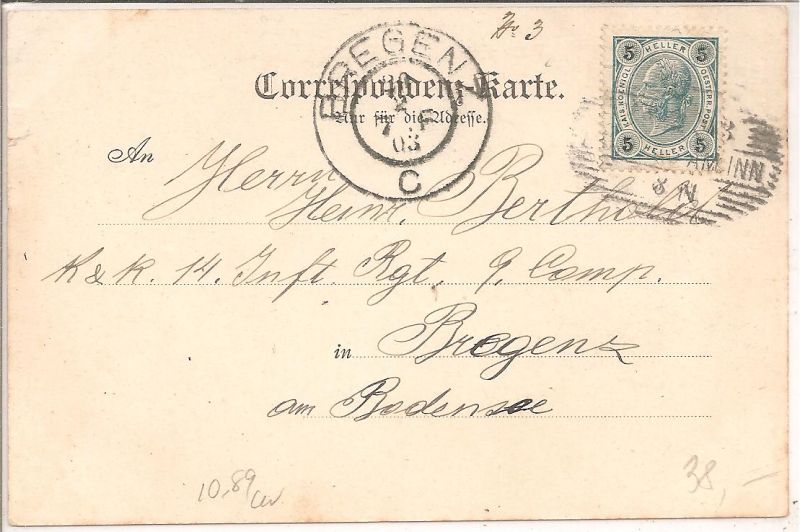 No 3
5 HELLER 5
KAIS. KOENIGL. OESTERR. POST
5 HELLER 5
BREGENZ
03
C
Correspondenz-Karte.
Nur für die Adresse.
AM INN
8 N
An Herrn
Heinr. Berthold
K & K. 14. Inft Rgt, 9. Comp.
in Bregenz
am Bodensee
10,89
38,-